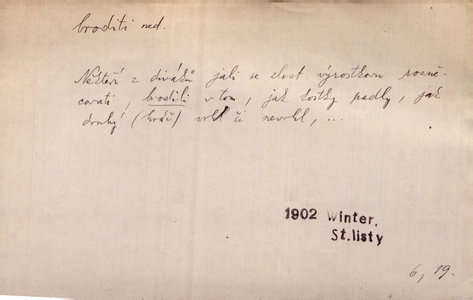 broditi ned.
Někteří z diváků jali se zlost výrostkovu rozně-
covati, brodili v tom, jak kostky padly, jak
druhý (hráč) vrhl či nevrhl, ...
1902 Winter,
St.listy
6, 19.